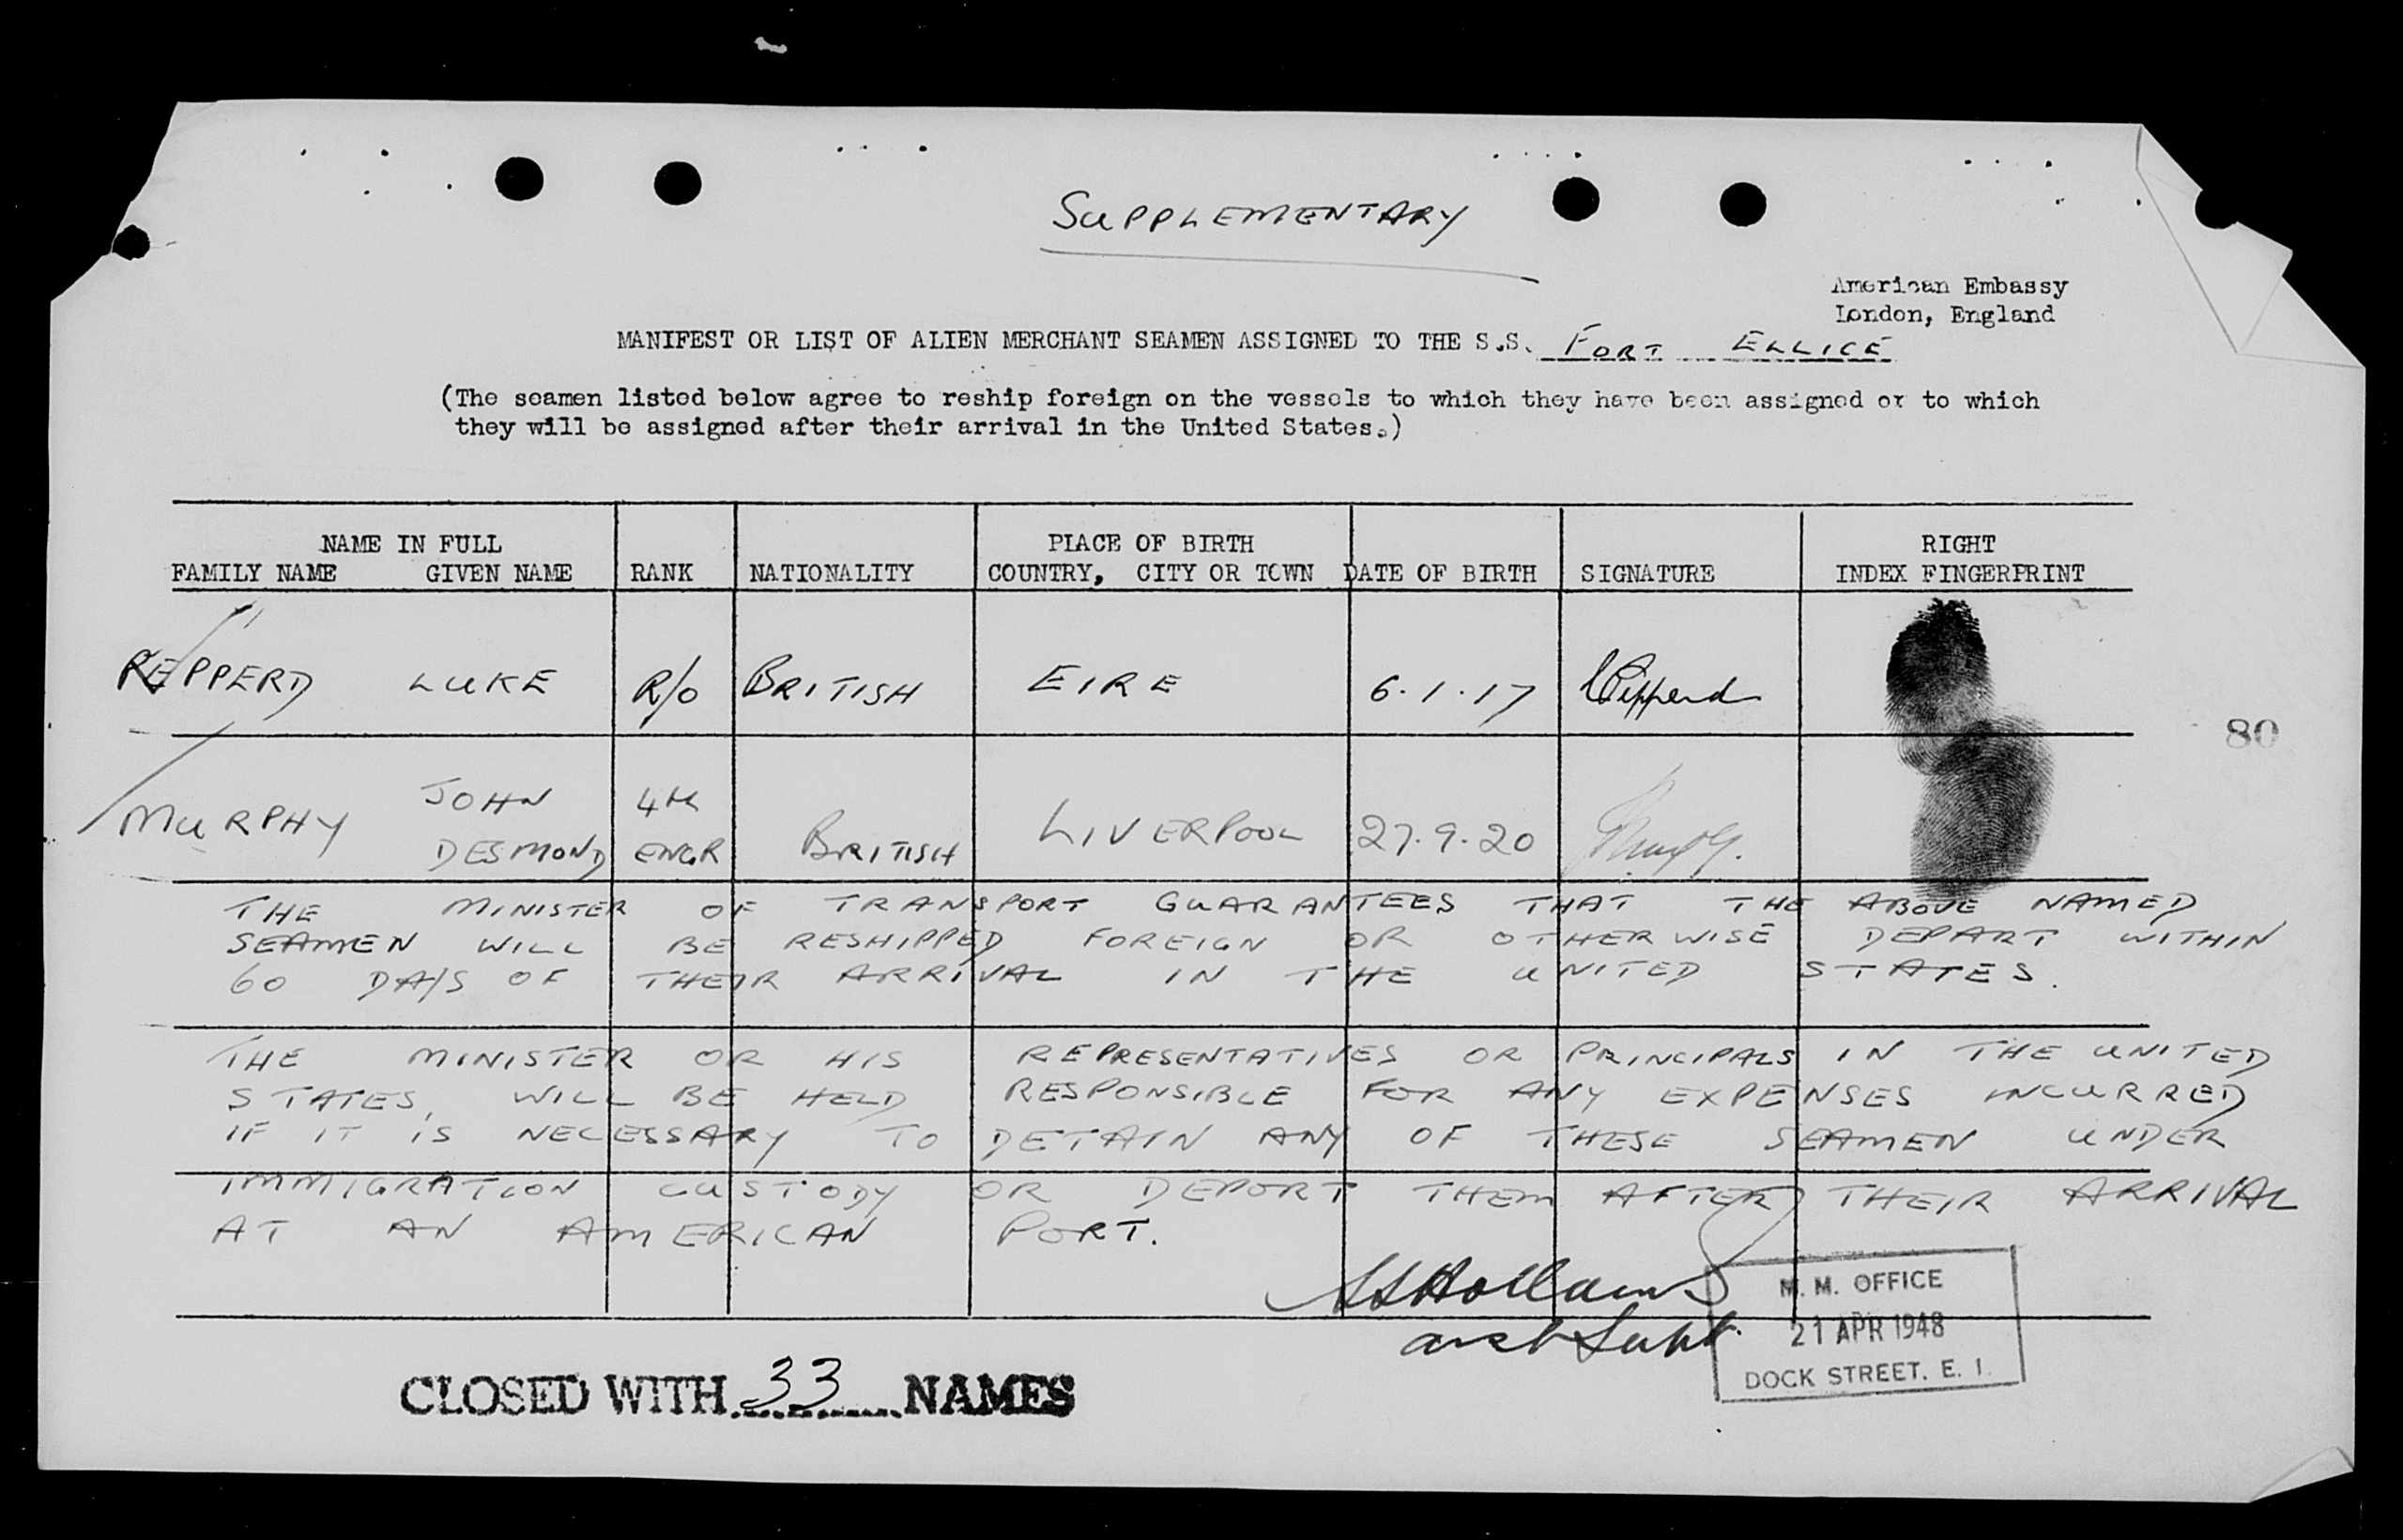 SUPPLEMENTARY
American Embassy
London, England
MANIFEST OR LIST OF ALIEN MERCHANT SEAMEN ASSIGNED TO THE S.S. FORT ELLICE
(The seamen listed below agree to reship foreign on the vessels to which they have been assigned or to which
they will be assigned after their arrival in the United States.)
NAME IN FULL
FAMILY NAME GIVEN NAME RANK NATIONALITY PLACE OF BIRTH COUNTRY, CITY OR TOWN DATE OF BIRTH SIGNATURE RIGHT INDEX FINGERPRINT
REPPERD LUKE R/O BRITISH EIRE 6.1.17
80
MURPHY JOHN DESMOND 4th ENGR BRITISH LIVERPOOL 27.9.20
THE MINISTER OF TRANSPORT GUARANTEES THAT THE ABOVE NAMED
SEAMEN WILL BE RESHIPPED FOREIGN OR OTHERWISE DEPART WITHIN
60 DAYS OF THEIR ARRIVAL IN THE UNITED STATES.
THE MINISTER OR HIS REPRESENTATIVES OR PRINCIPALS IN THE UNITED
STATES, WILL BE HELD RESPONSIBLE FOR ANY EXPENSES INCURRED
IF IT IS NECESSARY TO DETAIN ANY OF THESE SEAMEN UNDER
IMMIGRATION CUSTODY OR DEPORT THEM AFTER THEIR ARRIVAL
AT AN AMERICAN PORT.
M. M. OFFICE
21 APR 1948
DOCK STREET. E. 1.
CLOSED WITH 33 NAMES